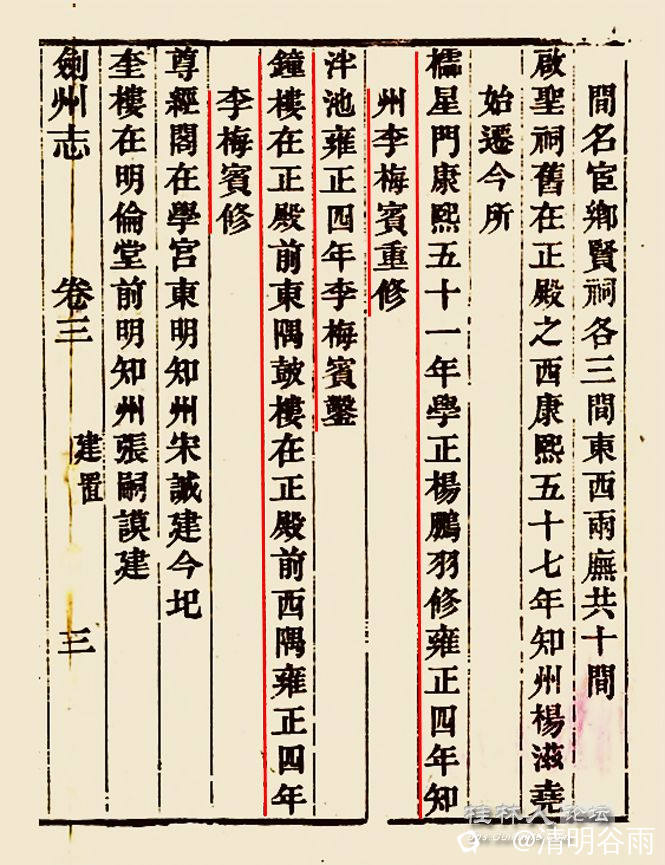 間名宦鄉賢祠各三間東西兩廡共十間
啟聖祠舊在正殿之西康熙五十七年知州楊滋堯
始遷今所
櫺星門康熙五十一年學正楊鵬羽修雍正四年知
州李梅賓重修
泮池雍正四年李梅賓鑿
鐘樓在正殿前東隅鼓樓在正殿前西隅雍正四年
李梅賓修
尊經閣在學宮東明知州朱誠建今圮
奎樓在明倫堂前明知州張嗣謨建
劍州志 卷三 建置 三
桂林人论坛
@清明谷雨